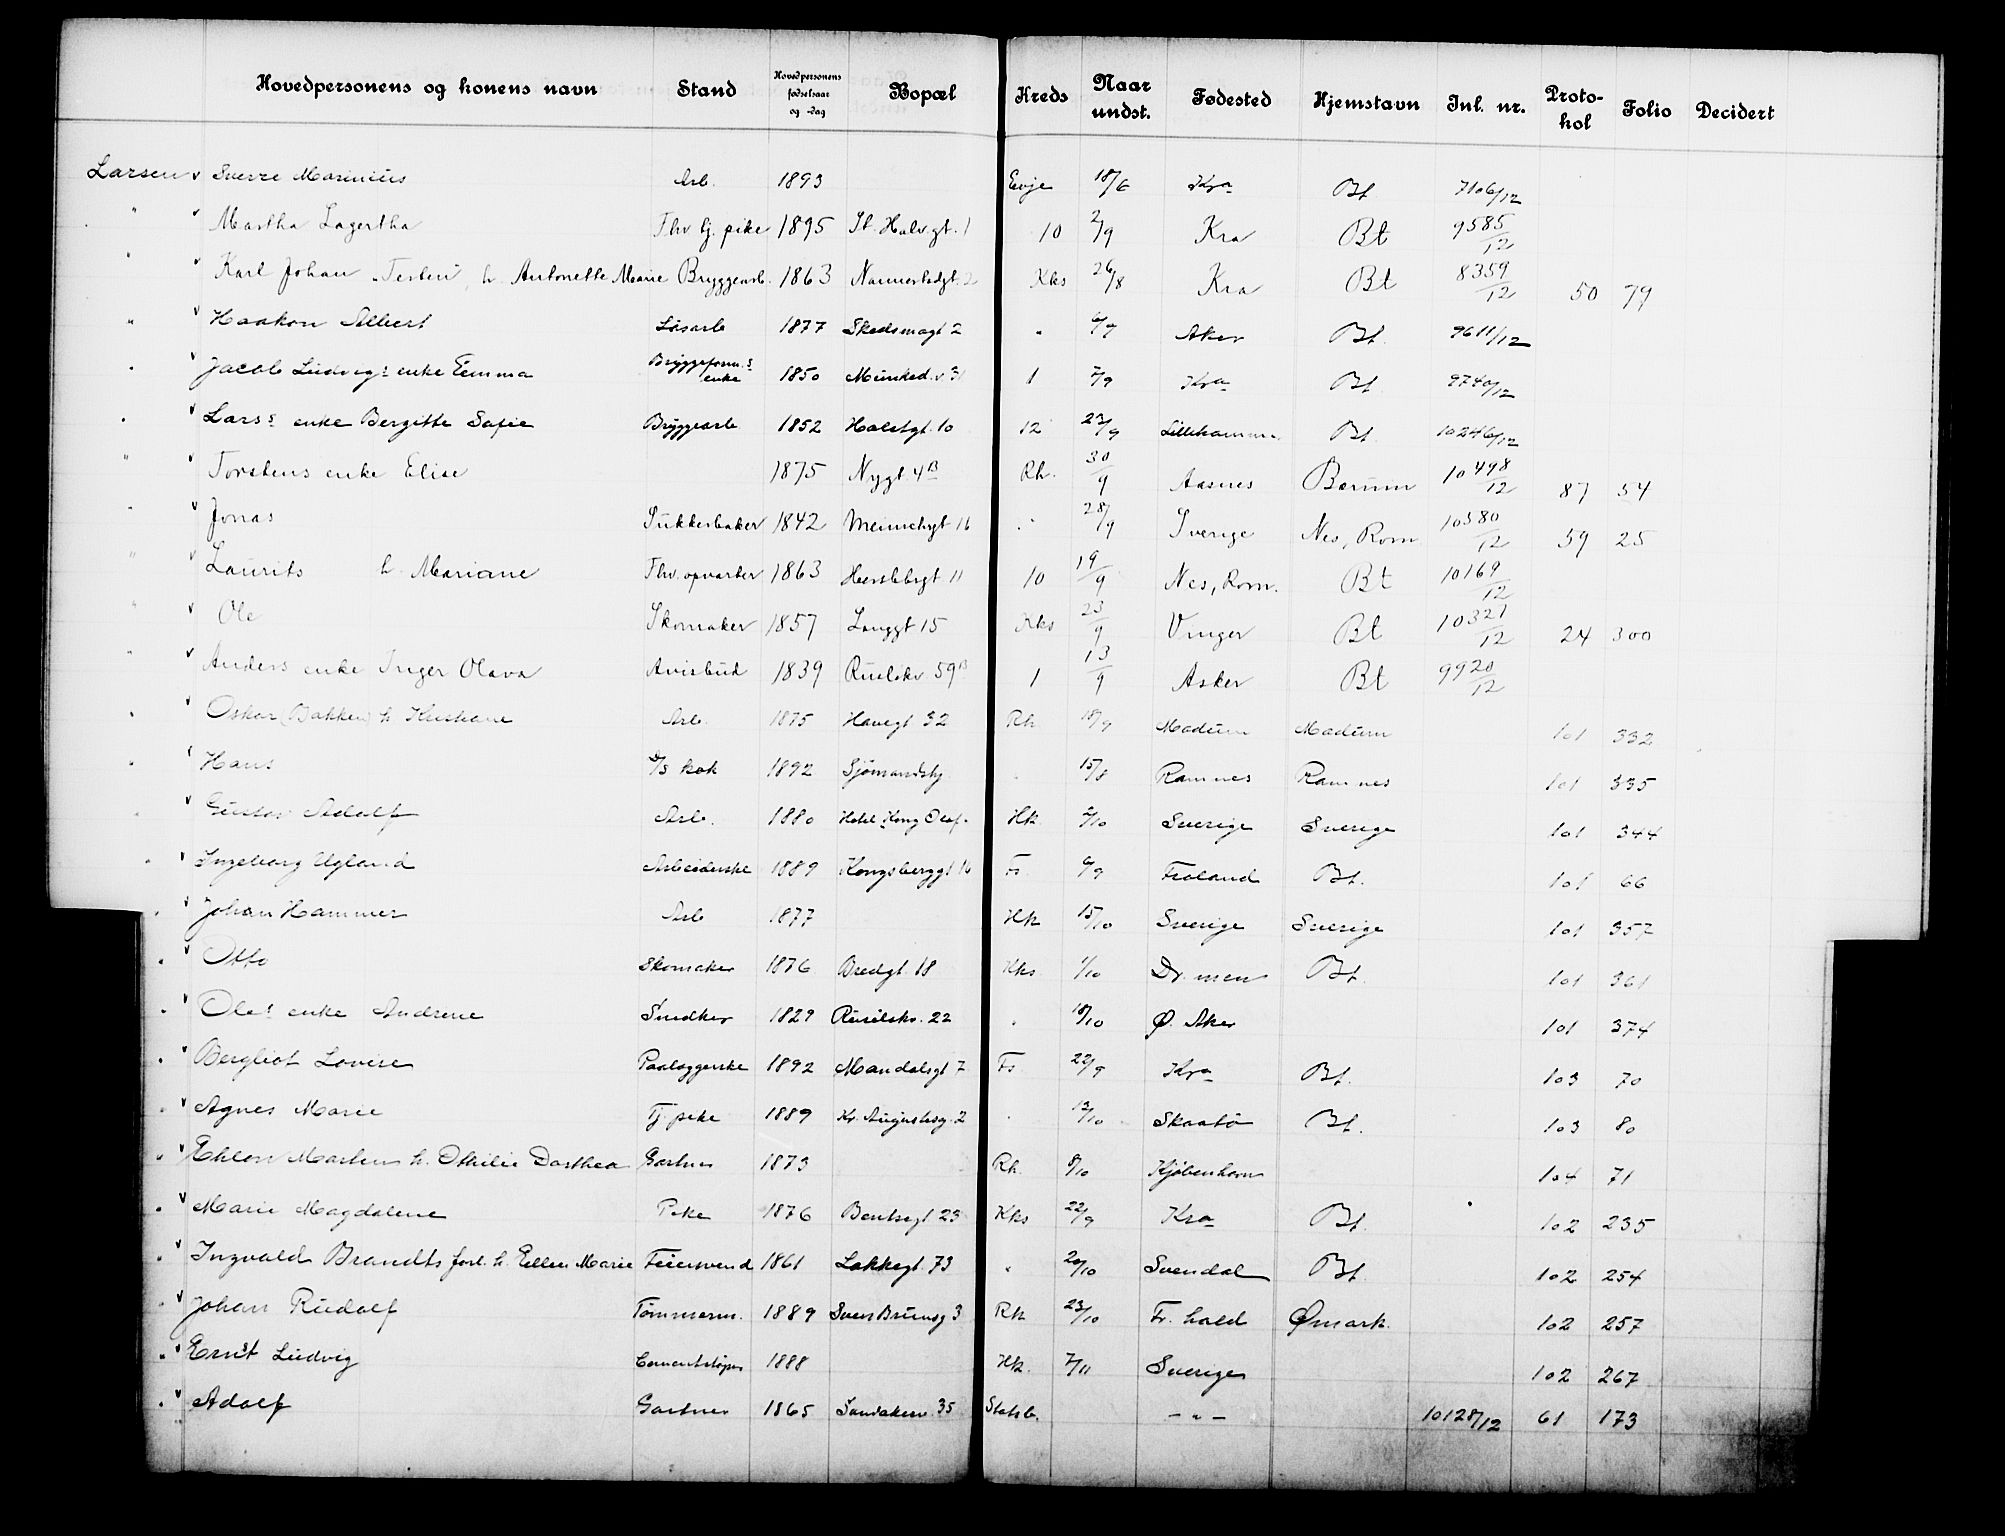 Hovedpersonens og konens navn Stand Hovedpersonens fødselsaar og -dag Bopæl Kreds Naar undst. Fødested Hjemstavn Inl. nr. Protokol Folio Decidert
Larsen Sverre Marinius Arb. 1893 Evje 18/6 Kra Bt. 7106/12
" Martha Lagertha Fhv tj. pike 1895 St. Halv.gt. 1 10 2/9 Kra Bt 9585/12
" Karl Johan h. Antonette Marie Bryggearb. 1863 Nannestadgt. 2 Kks 26/8 Kra Bt 8359/12 50 79
" Haakon Albert Løsarb 1877 Skedsmogt 2 " 6/9 Aker Bt. 9611/12
" Jacob Ludvigs enke Emma Bryggeform.s enke 1850 Munked.v. 31 1 7/9 Kra Bt. 9740/12
" Lars's enke Bergitte Sofie Bryggearb 1852 Holstgt. 10 12 23/9 Lillehammer Bt. 10246/12
" Torstens enke Elise 1875 Nygt. 4B Rh. 30/9 Aasnes Bærum 10498/12 87 54
" Jonas Sukkerbaker 1842 Meinichsgt 16 " 28/9 Sverige Nes, Rom. 10380/12 59 25
" Laurits h. Mariane Fhv. opvarter 1863 Herslebsgt 11 10 19/9 Nes, Rom. Bt 10169/12
" Ole Skomaker 1857 Langgt 15 Kks 23/9 Vinger Bt 10321/12 24 300
" Anders enke Inger Olava Avisbud 1839 Ruselskv. 59B 1 13/9 Asker Bt 9920/12
" Oskar (Bakken) h. Kristiane Arb. 1875 Havegt 32 Rh 18/9 Modum Modum 101 332
" Hans D/S kok 1892 Sjømandshj. " 15/8 Ramnes Ramnes 101 335
" Gustav Adolf Arb. 1880 Hotel Kong Olaf. Hk. 2/10 Sverige Sverige 101 344
" Ingeborg Ugland Arbeiderske 1889 Kongsberggt 16 Fs. 6/9 Froland Bt. 101 66
" Johan Hammer Arb 1877 Hk 15/10 Sverige Sverige 101 357
" Otto Skomaker 1876 Bredgt 18 Kks. 1/10 Dr.men Bt. 101 361
" Oles enke Andrine Snedker 1829 Ruselskv. 22 " 18/10 Ø. Aker 101 374
" Bergliot Lovise Paaleggerske 1892 Mandalsgt 7 Fs. 22/9 Kra Bt. 103 70
" Agnes Marie Tj. pike 1889 Kr. Augustsg. 2 " 12/10 Skaatø Bt. 103 80
" Martin h. Othilie Dorthea Gartner 1873 Rh. 8/10 Kjøbenhavn 104 71
" Marie Magdalene Pike 1876 Bentsegt 23 Kks 22/9 Kra Bt. 102 235
" Ingvald Brandts forl. h. Ellen Marie Feiersvend 1861 Lakkegt. 73 " 20/10 Svendal Bt. 102 254
" Johan Rudolf Tømmerm. 1889 Sven Brunsg 3 Rh 23/10 Fr. hald Ømark. 102 257
" Ernst Ludvig Cementstøper 1888 Hk. 7/11 Sverige 102 267
" Adolf Gartner 1865 Sandakerv. 35 Statsb. – " – 10128/12 61 173